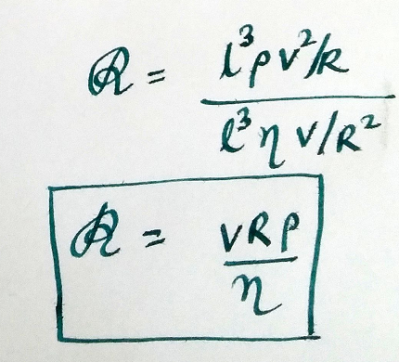 ℛ = l³ρv²/R / l³ηv/R²
ℛ = vRρ / η